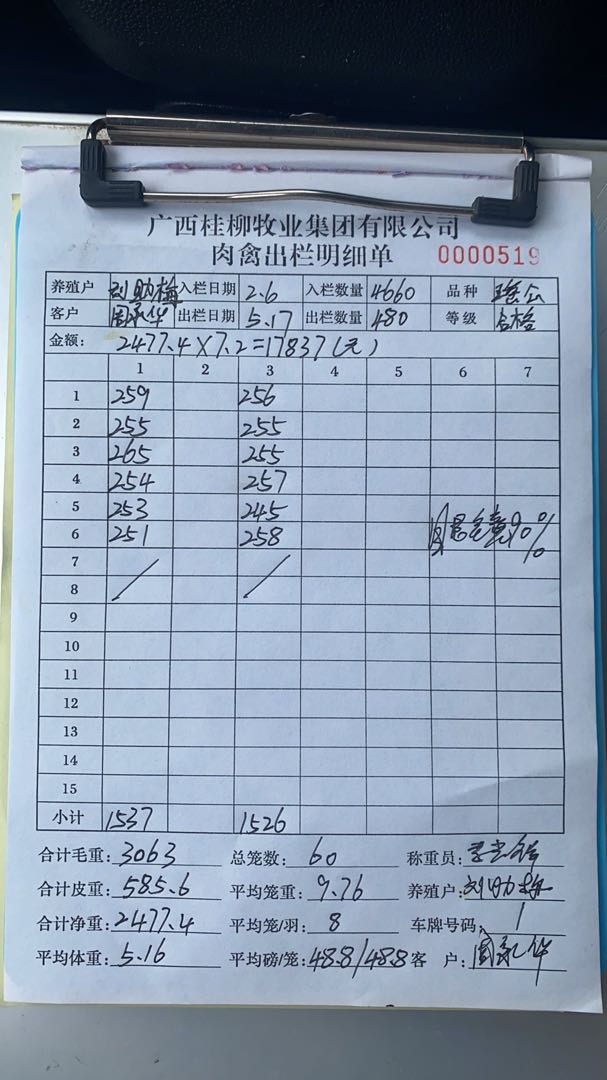 广西桂柳牧业集团有限公司
肉禽出栏明细单 0000519
养殖户 刘助梅 入栏日期 2.6 入栏数量 4660 品种
客户 周承华 出栏日期 5.17 出栏数量 480 等级 合格
金额: 2477.4×7.2=17837(元)
1 2 3 4 5 6 7
1 259 256
2 255 255
3 265 255
4 254 257
5 253 245
6 251 258 90%
7
8
9
10
11
12
13
14
15
小计 1537 1526
合计毛重: 3063 总笼数: 60 称重员:
合计皮重: 585.6 平均笼重: 9.76 养殖户: 刘助梅
合计净重: 2477.4 平均笼/羽: 8 车牌号码: 1
平均体重: 5.16 平均磅/笼: 48.8/48.8 客 户: 周承华